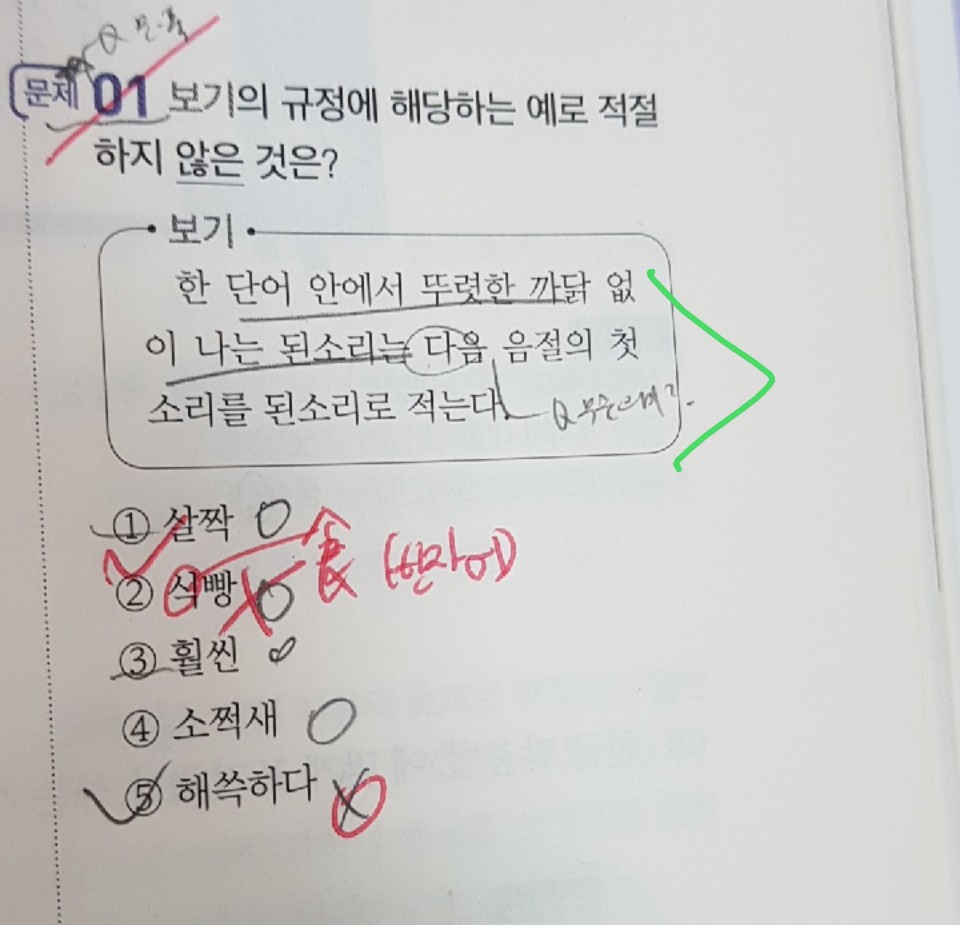 Q 문.
문제 01 보기의 규정에 해당하는 예로 적절
하지 않은 것은?
보기
한 단어 안에서 뚜렷한 까닭 없
이 나는 된소리는 다음 음절의 첫
소리를 된소리로 적는다.
Q 무슨 의미?
① 살짝 O
② 식빵 O 食 (한자어)
③ 훨씬 O
④ 소쩍새 O
⑤ 해쓱하다 X O